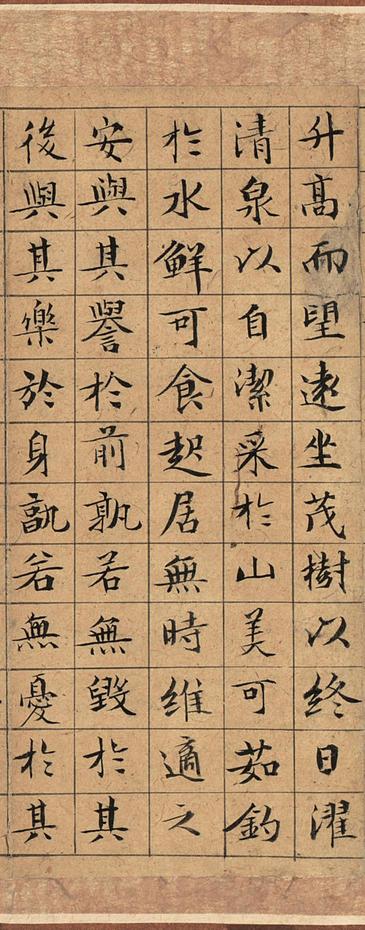 升高而望遠坐茂樹以終日濯
清泉以自潔采於山美可茹釣
於水鮮可食起居無時維適之
安與其譽於前孰若無毀於其
後與其樂於身孰若無憂於其